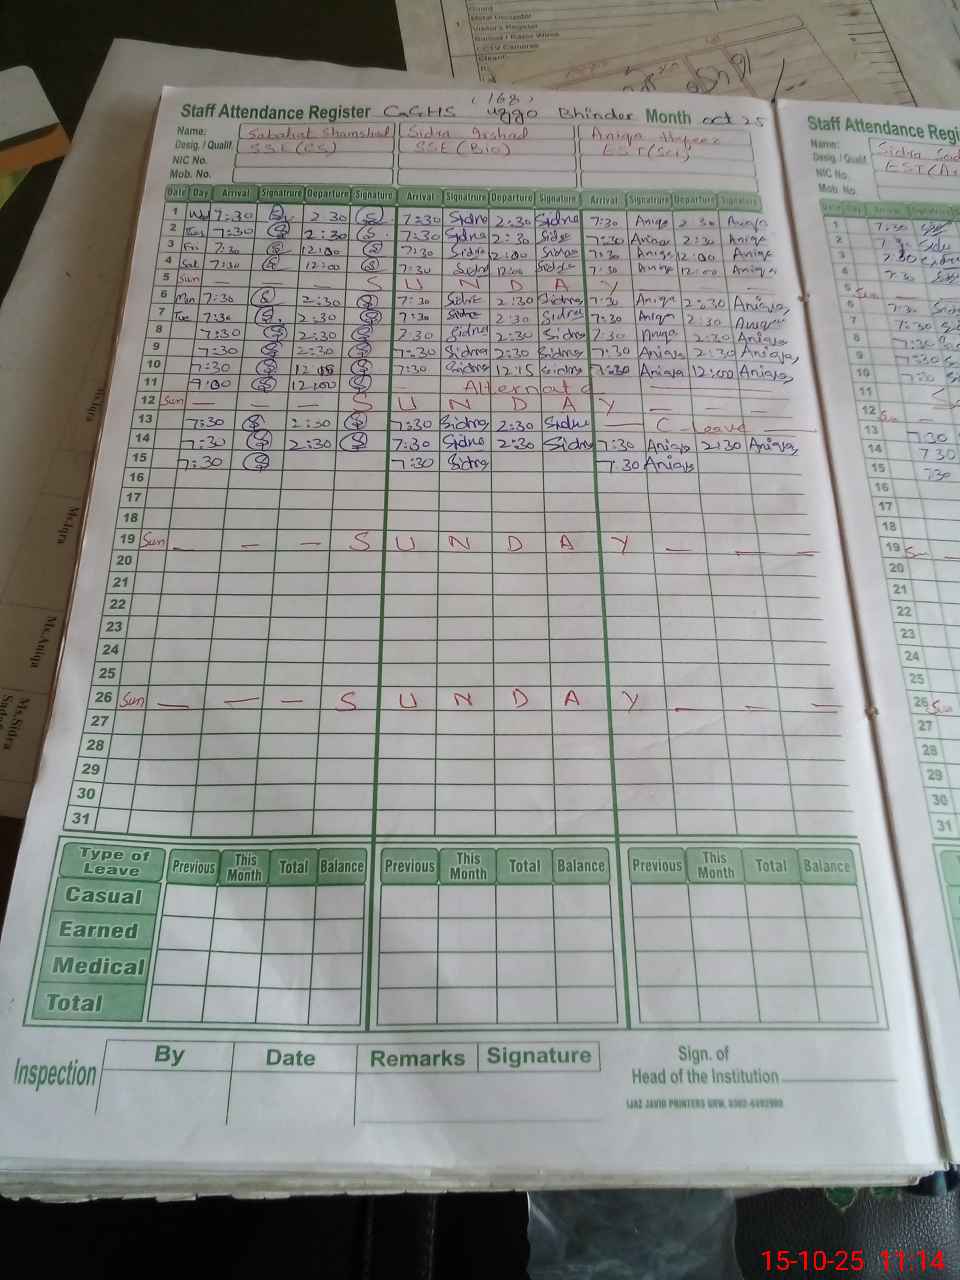 Guard
Metal Detector
Visitor's Register
Barbed / Razor Wires
CCTV Cameras
(168)
Staff Attendance Register GGHS uggo Bhinder Month Oct 25
Name: Sabahat Shamshad Sidra Arshad Aniqa Hafeez
Desig. / Qualif. SSE (CS) SSE (Bio) EST (Sci)
NIC No.
Mob. No.
Date Day Arrival Signature Departure Signature Arrival Signature Departure Signature Arrival Signature Departure Signature
1 Wed 7:30 2:30 7:30 Sidra 2:30 Sidra 7:30 Aniqa 2:30 Aniqa
2 7:30 2:30 7:30 Sidra 2:30 Sidra 7:30 Aniqa 2:30 Aniqa
3 Fri 7:30 12:00 7:30 Sidra 12:00 Sidra 7:30 Aniqa 12:00 Aniqa
4 Sat 7:30 12:00 7:30 Sidra 12:00 Sidra 7:30 Aniqa 12:00 Aniqa
5 Sun — — — S U N D A Y — — —
6 Mon 7:30 2:30 7:30 Sidra 2:30 Sidra 7:30 Aniqa 2:30 Aniqa
7 Tue 7:30 2:30 7:30 Sidra 2:30 Sidra 7:30 Aniqa 2:30 Aniqa
8 7:30 2:30 7:30 Sidra 2:30 Sidra 7:30 Aniqa 2:30 Aniqa
9 7:30 2:30 7:30 Sidra 2:30 Sidra 7:30 Aniqa 2:30 Aniqa
10 7:30 7:30 Sidra 12:15 Sidra 7:30 Aniqa 12:00 Aniqa
11 9:00 12:00 — Alternate — —
12 Sun — — — S U N D A Y — — —
13 7:30 2:30 7:30 Sidra 2:30 Sidra — C. Leave —
14 7:30 2:30 7:30 Sidra 2:30 Sidra 7:30 Aniqa 2:30 Aniqa
15 7:30 7:30 Sidra 7:30 Aniqa
16
17
18
19 Sun — — — S U N D A Y — — —
20
21
22
23
24
25
26 Sun — — — S U N D A Y — — —
27
28
29
30
31
Type of Leave Previous This Month Total Balance Previous This Month Total Balance Previous This Month Total Balance
Casual
Earned
Medical
Total
Inspection By Date Remarks Signature
Sign. of
Head of the Institution
IJAZ JAVID PRINTERS GRW.
Staff Attendance Regi
Name: Sidra
Desig. / Qualif
NIC No.
Mob. No.
1 7:30
2
3 7:30
4 7:30
5 Sun
6 7:30
7 7:30
8 7:30
9 7:30
10 7:30
11
12
13 7:30
14 7:30
15 7:30
16
17
18
19
20
21
22
23
24
25
26 Sun
27
28
29
30
31
Ms.Iqra
Ms.Iqra
Ms.Aniqa
Ms.Sidra
15-10-25 11:14